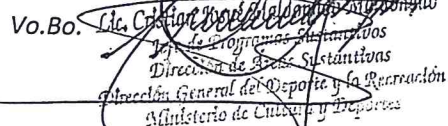 Vo.Bo. Lic. Cristian
de Programas Sustantivos
Dirección de Áreas Sustantivas
Dirección General del Deporte y la Recreación
Ministerio de Cultura y Deportes